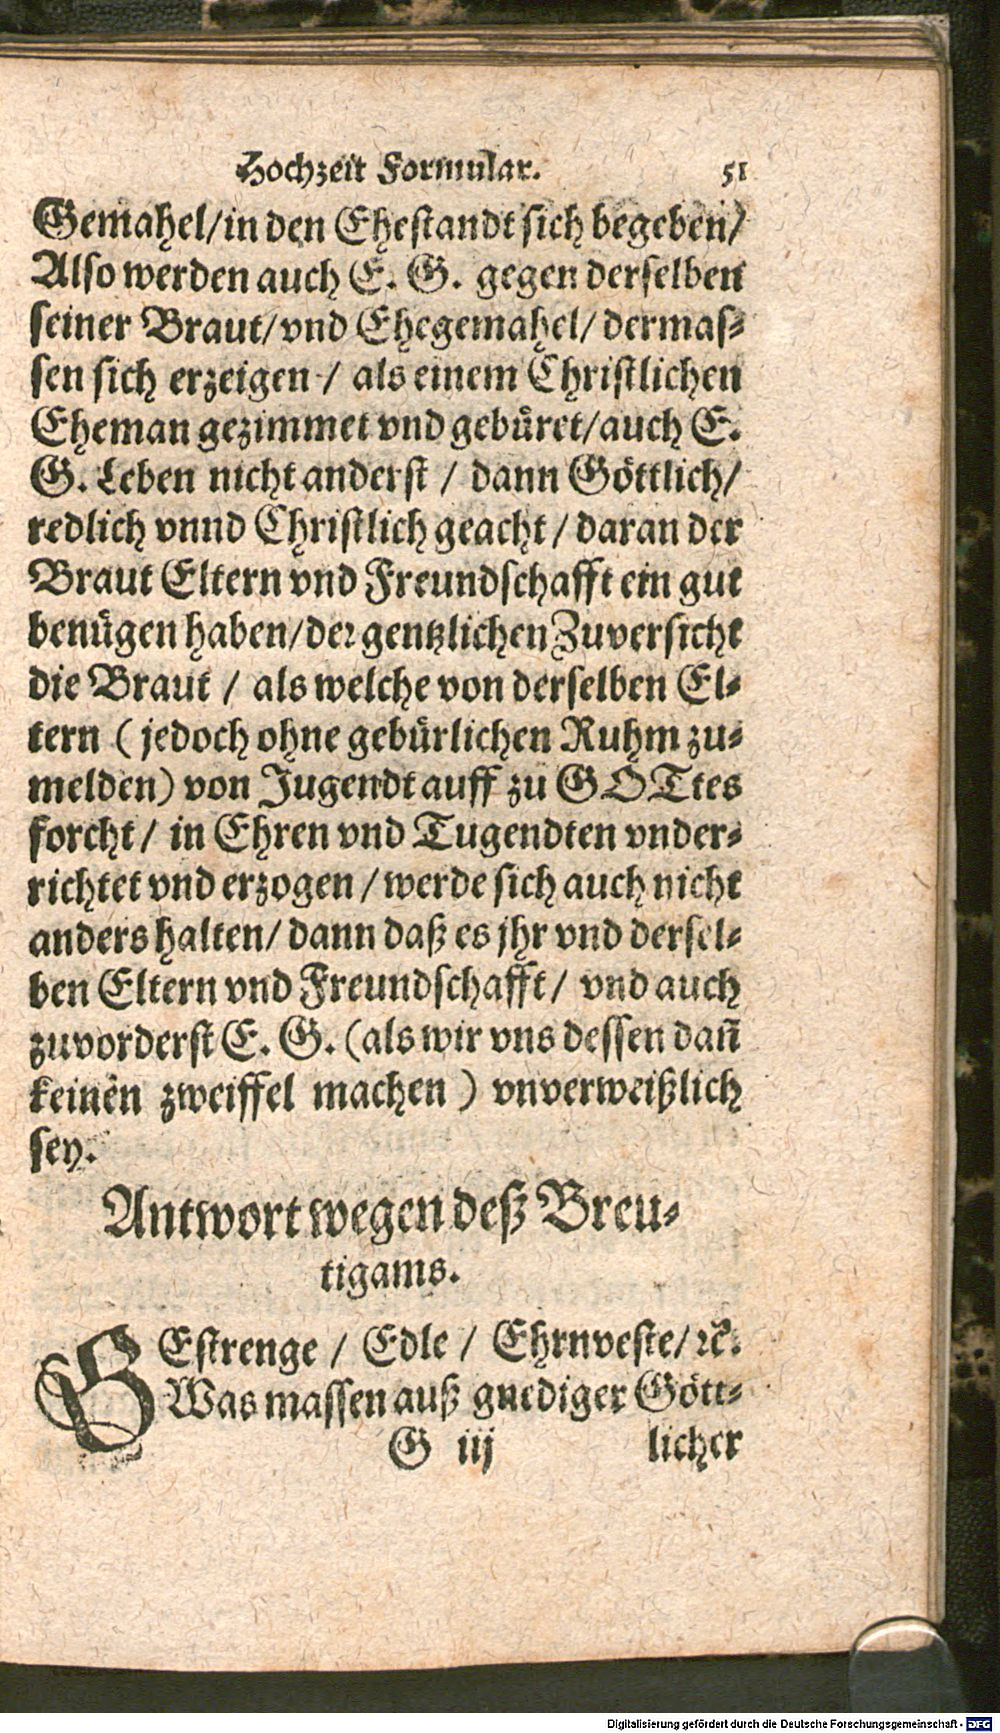 Hochzeit Formular. 51
Gemahel/in den Ehestandt sich begeben/
Also werden auch E. G. gegen derselben
seiner Braut/vnd Ehegemahel/ dermas-
sen sich erzeigen / als einem Christlichen
Eheman gezimmet vnd gebüret/auch E.
G. Leben nicht anderst / dann Göttlich/
redlich vnnd Christlich geacht / daran der
Braut Eltern vnd Freundschafft ein gut
benügen haben/der gentzlichen Zuversicht
die Braut / als welche von derselben El-
tern ( jedoch ohne gebürlichen Ruhm zu-
melden) von Jugendt auff zu GOTtes
forcht / in Ehren vnd Tugendten vnder-
richtet vnd erzogen / werde sich auch nicht
anders halten/ dann daß es jhr vnd dersel-
ben Eltern vnd Freundschafft / vnd auch
zuvorderst E. G. (als wir vns dessen dañ
keinen zweiffel machen ) vnverweißlich
sey.
Antwort wegen deß Breu-
tigams.
GEstrenge / Edle / Ehrnveste/ ꝛc.
Was massen auß gnediger Gött-
G iij licher
Digitalisierung gefördert durch die Deutsche Forschungsgemeinschaft - DFG